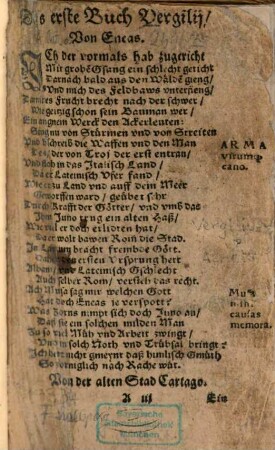 Das erste Buch Vergilij/
Von Eneas.
ICh der vormals hab zugericht
Mit grobē Gsang ein schlecht geticht
Darnach bald aus den Wäldē gieng/
Und mich des Feldbaws unterfieng/
Damit es Frucht brecht nach der schwer/
Wie geizig schon sein Bauman wer/
Ein angnem Werck den Ackerleuten:
Sing nu von Stürmen und von Streiten
Und bschreib die Waffen und den Man
der von Troj der erst entran/
Und floh in das Italisch Land/
Da er Lateinisch Ufer fand/
Wie er zu Land und auff dem Meer
Geworffen ward/ geübet sehr
Durch Krafft der Götter/ und umb das
Ihm Juno trug ein alten Haß/
Wie viel er doch erlidten hat/
Da er wolt bawen Rom die Stad.
In Latium bracht frembde Gött.
ersten Ursprung herr
Alban/ und Lateinisch Gschlecht
Auch selber Rom/ versteh das recht.
Ach Musa sag mir welchen Gott
Hat doch Eneas je verspott?
Was Zorns nimpt sich doch Juno an/
Daß sie ein solchen milden Man
Zu so viel Müh und Arbeit zwingt/
Und in solch Noth und Trübsal bringt?
Ich hett nicht gmeynt daß himlisch Gmüth
So zorniglich nach Rache wüt.
Von der alten Stad Cartago.
A iij
Ein
ARMA
virumque
cano.
Musa
mihi
causas
memora.
Bayerische
Staatsbibliothek
München